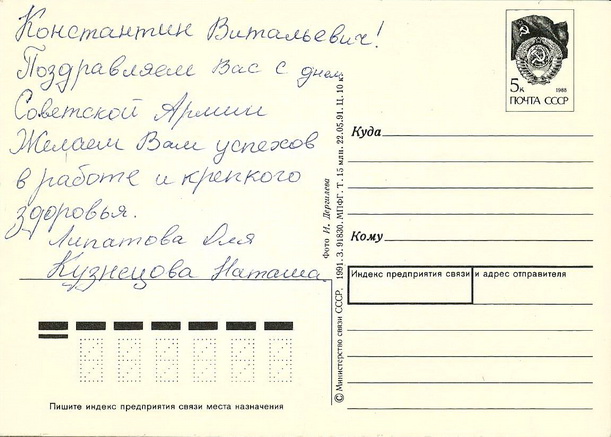 Константин Витальевич!
Поздравляем Вас с днем
Советской Армии
Желаем Вам успехов
в работе и крепкого
здоровья.
Липатова Оля
Кузнецова Наташа
5к 1988
ПОЧТА СССР
Куда
Кому
Индекс предприятия связи и адрес отправителя
Фото И. Дергилева
© Министерство связи СССР. 1991. З. 91830. МПФГ. Т. 15 млн. 22.05.91. Ц. 10 к.
Пишите индекс предприятия связи места назначения